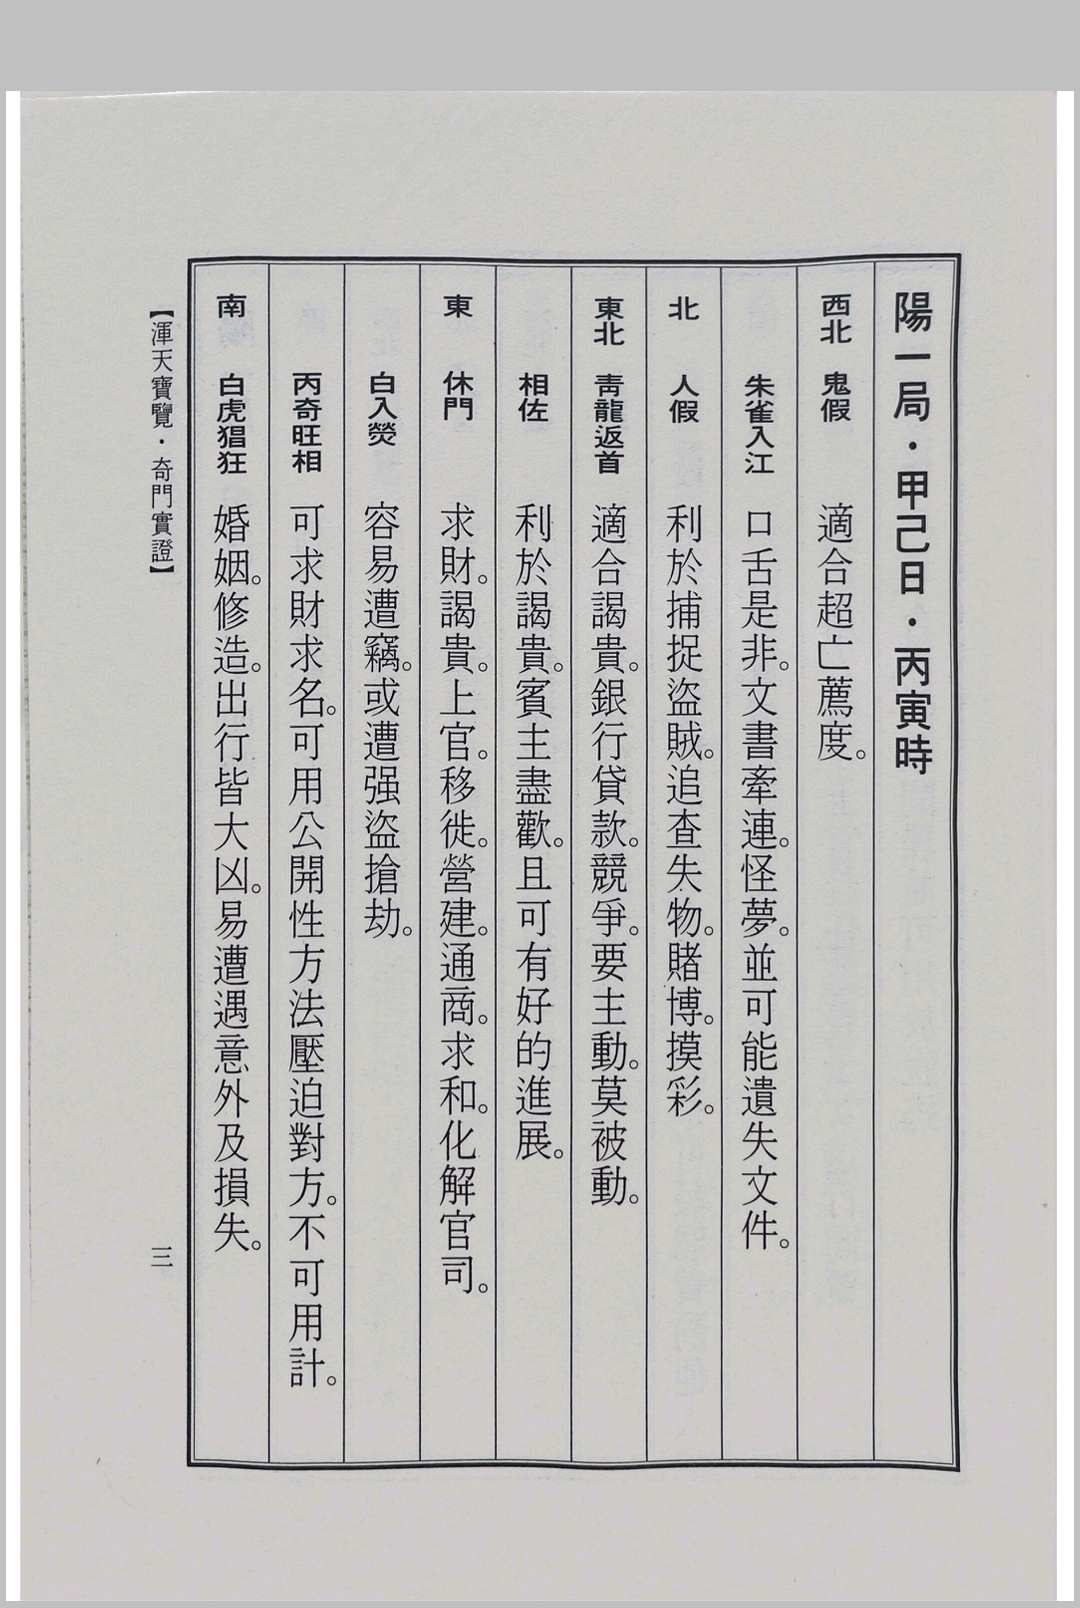 陽一局·甲己日·丙寅時
西北 鬼假 適合超亡薦度。
朱雀入江 口舌是非。文書牽連。怪夢。並可能遺失文件。
北 人假 利於捕捉盜賊。追查失物。賭博。摸彩。
東北 青龍返首 適合謁貴。銀行貸款。競爭。要主動。莫被動。
相佐 利於謁貴。賓主盡歡。且可有好的進展。
東 休門 求財。謁貴。上官。移徙。營建。通商。求和。化解官司。
白入熒 容易遭竊。或遭强盜搶劫。
丙奇旺相 可求財求名。可用公開性方法壓迫對方。不可用計。
南 白虎猖狂 婚姻。修造。出行皆大凶。易遭遇意外及損失。
【渾天寶覽·奇門實證】
三